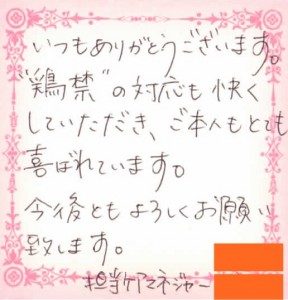 いつもありがとうございます。
"鶏禁"の対応も快く
していただき、ご本人もとても
喜ばれています。
今後ともよろしくお願い
致します。
担当ケアマネジャー